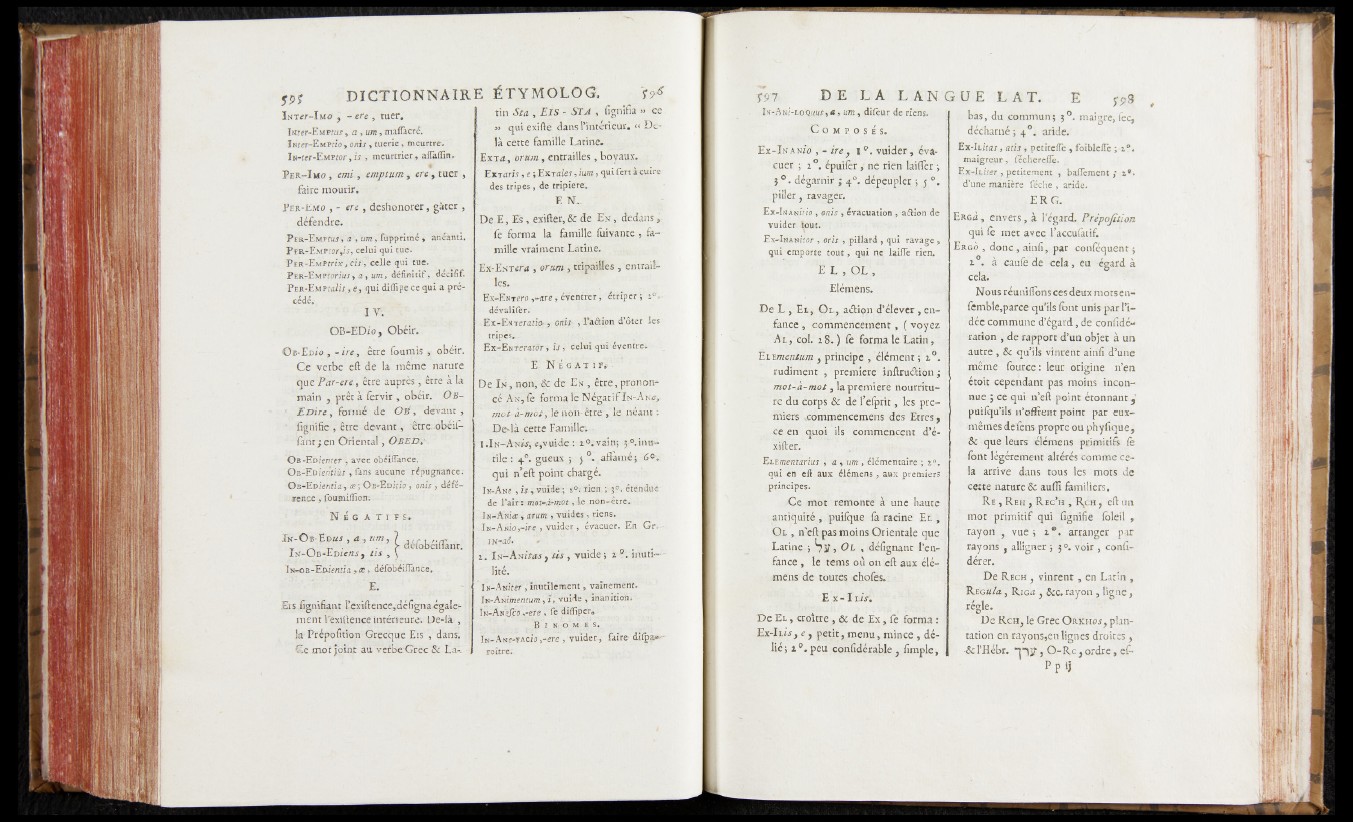 595 DICTIONNAIRE ÉTYMOLOG. 596
INTer-IMO , - ere , tuer.
Inter-EMPtus , a , um , maſſacré.
Inter-EMPtio , onis , tuerie , meurtre.
IN-ter-EMPtor , is , meurtrier , aſſaſſin.
PER-IMO , emi , emptum , ere , tuer ,
faire mourir.
PER-EMO , - ere , deshonorer , gâter ,
défendre.
PER-EMPtus , a , um , ſupprimé , anéanti.
PER-EMPtor , is , celui qui tue.
PER-EMPtrix , cis , celle qui tue.
PER-EMPtorius , a , um , définitif , déciſif.
PER-EMPtalis , e , qui diſſipe ce qui a pré-
cédé.
IV.
OB-EDio , Obéir.
OB-EDio , - ire , être ſoumis , obéir.
Ce verbe eſt de la même nature
que Par-ere , être auprès , être à la
main , prêt à ſervir , obéir. OB-
EDire , formé de OB , devant ,
ſignifie , être devant , être obéiſ-
ſant ; en Oriental , OBED.
OB-EDienter , avec obéiſſance.
OB-EDientiùs , ſans aucune répugnance.
OB-EDientia , æ ; OB-EDitio , onis , défé-
rence , ſoumiſſion.
NÉGATIFS.
IN-OB-EDus , a , um , }
IN-OB-EDiens , tis , } déſobéiſſant.
IN-OB-EDientia , æ , déſobéiſſance.
E.
EIS ſignifiant l'exiſtence, déſigna égale-
ment l'exiſtence intérieure. De-là ,
la Prépoſition Grecque EIS , dans.
Ce mot joint au verbe Grec & La-
tin Sta , EIS - STA , ſignifia » ce
» qui exiſte dans l'intérieur. « De-
là cette famille Latine.
EXTA , orum , entrailles , boyaux.
EXTaris , e ; EXTales , ium , qui ſert à cuire
des tripes , de tripiere.
EN.
De E , Es , exiſter, & de EN , dedans ,
ſe forma la famille ſuivante , fa-
mille vraiment Latine.
EX-ENTera , orum , tripailles , entrail-
les.
EX-ENTero ,-are , éventrer , étriper ; 2°.
dévaliſer.
EX-ENTeratio , onis , l'action d'ôter les
tripes.
EX-ENTerator , is , celui qui éventre.
E NÉGATIF,
De IN , non, & de EN , être , pronon-
cé AN, ſe forma le Négatif IN-ANe,
mot à-mot , le non être , le néant :
De-là cette Famille.
1. IN-ANIS, e, vuide : 2°. vain; 3°. inu-
tile : 4°. gueux ; 5°. affamé ; 6°.
qui n'eſt point chargé.
IN-ANE , is , vuide ; 2°. rien ; 3°. étendue
de l'air : mot-à-mot , le non-être.
IN-ANIæ , arum , vuides , riens.
IN-ANIO ,-ire , vuider , évacuer. En Gr.
IN-aô.
2. IN-ANItas , tis , vuide ; 2°. inuti-
lité.
IN-ANiter , inutilement , vaînement.
IN-ANimentum , i , vuide , inanition.
IN-ANeſco ,-ere , ſe diſſiper.
BINOMES.
IN-ANE-FACio ,-ere , vuider , faire diſpa-
roître.
597 DE LA LANGUE LAT. E 598
IN-ANI-LOQuus , a , um , diſeur de riens.
COMPOSÉS.
EX-INANIO , - ire , 1°. vuider , éva-
cuer ; 2°. épuiſer , ne rien laiſſer ;
3°. dégarnir ; 4°. dépeupler ; 5°.
piller , ravager.
EX-INANitio , onis , évacuation , action de
vuider tout.
EX-INANitor , oris , pillard , qui ravage ,
qui emporte tout , qui ne laiſſe rien.
EL , OL ,
Elémens.
De L , EL , OL , action d'élever , en-
fance , commencement , ( voyez
AL , col. 28. ) ſe forma le Latin ,
ELEmentum , principe , élément ; 2°.
rudiment , premiere inſtruction ;
mot-à-mot , la premiere nourritu-
re du corps & de l'eſprit , les pre-
miers commencemens des Etres ,
ce en quoi ils commencent d'é-
xiſter.
ELEmentarius , a , um , élémentaire ; 2°.
qui en eſt aux élémens , aux premiers
principes.
Ce mot remonte à une haute
antiquité , puiſque ſa racine EL ,
OL , n'eſt pas moins Orientale que
Latine ; עול , OL , déſignant l'en-
fance , le tems où on eſt aux élé-
mens de toutes choſes.
EX-ILis.
De EL , croître , & de Ex , ſe forma :
EX-ILis , e , petit , menu , mince , dé-
lié ; 2°. peu conſidérable , ſimple ,
bas , du commun ; 3°. maigre, ſec,
décharné ; 4°. aride.
EX-ILitas , atis , petiteſſe , foibleſſe ; 2°.
maigreur , ſéchereſſe.
EX-ILiter , petitement , baſſement ; 2°.
d'une manière ſéche , aride.
ERG.
ERGà , envers , à l'égard. Prépoſition
qui ſe met avec l'accuſatif.
ERGò , donc , ainſi , par conſéquent ;
2°. à cauſe de cela , eu égard à
cela.
Nous réuniſſons ces deux mots en-
ſemble, parce qu'ils ſont unis par l'i-
dée commune d'égard , de conſidé-
ration , de rapport d'un objet à un
autre , & qu'ils vinrent ainſi d'une
même ſource : leur origine n'en
étoit cependant pas moins incon-
nue ; ce qui n'eſt point étonnant ,
puiſqu'ils n'offrent point par eux-
mêmes de ſens propre ou phyſique,
& que leurs élémens primitifs ſe
ſont légérement altérés comme ce-
la arrive dans tous les mots de
cette nature & auſſi familiers.
RE , REH , REC'H , RCH , eſt un
mot primitif qui ſignifie ſoleil ,
rayon , vue ; 2°. arranger par
rayons , alligner ; 3°. voir , conſi-
dérer.
De RECH , vinrent , en Latin ,
REGula , RIGA , &c. rayon , ligne ,
régle.
De RCH, le Grec ORKHOS, plan-
tation en rayons, en lignes droites ,
& l'Hébr. ערך , O-RC , ordre , eſ-
P p ij